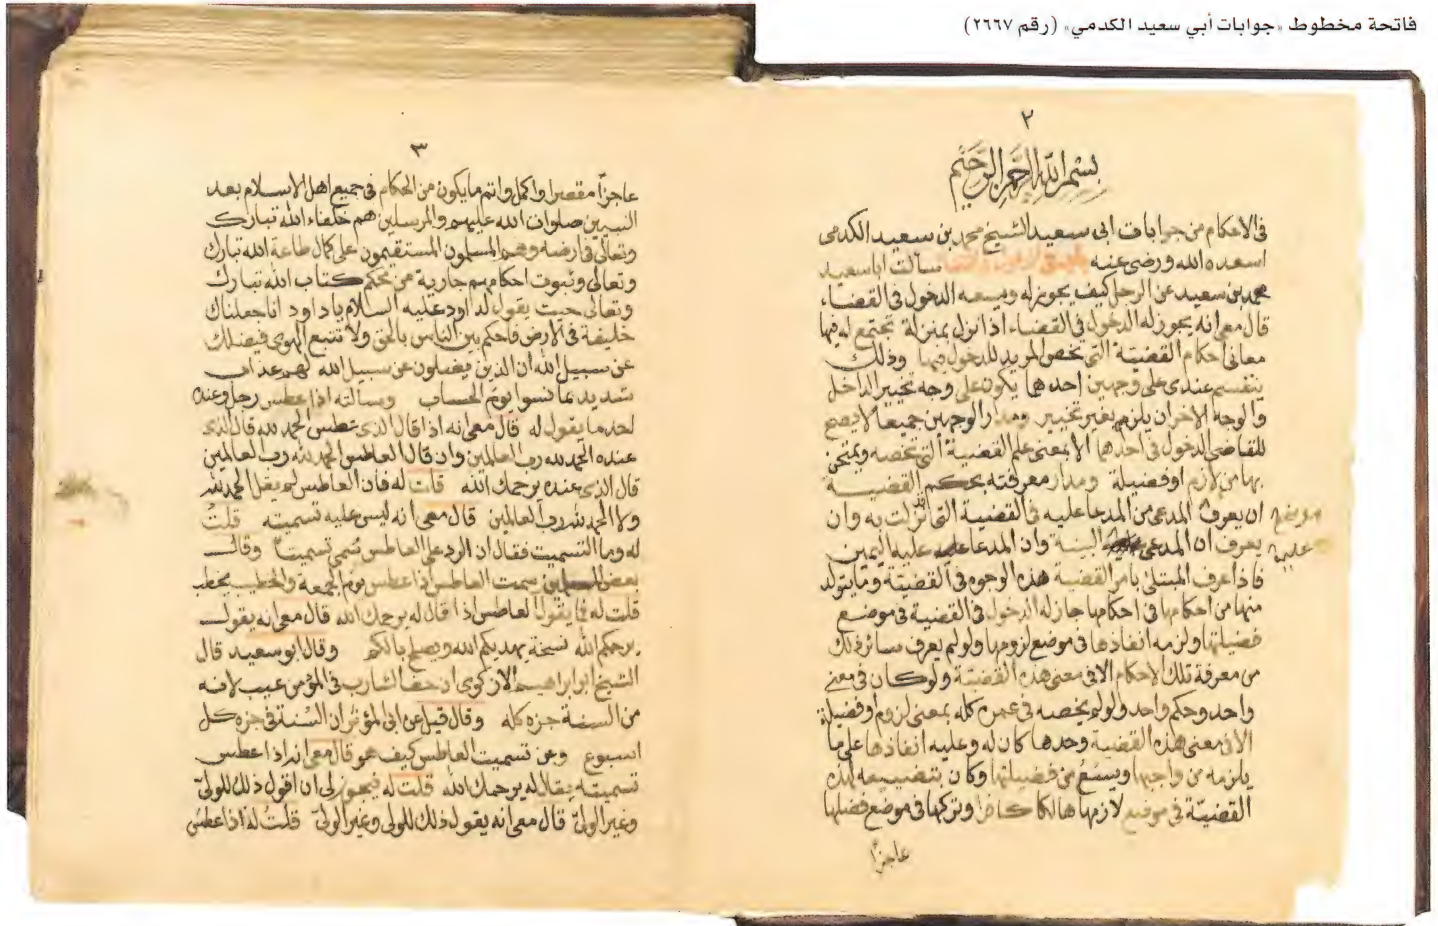 فاتحة مخطوط «جوابات أبي سعيد الكدمي» (رقم ٢٦٦٧)
٢
بسم الله الرحمن الرحيم
في الاحكام من جوابات ابي سعيد الشيخ محمد بن سعيد الكدمي
اسعده الله ورضي عنه سألت ابا سعيد
محمد بن سعيد عن الرجل كيف يجوز له ويسعه الدخول في القضاء
قال معي انه يجوز له الدخول في القضاء اذا نزل بمنزلة تجتمع له فيها
معاني احكام القضية التي يخص المريد للدخول فيها وذلك
ينقسم عندي على وجهين احدهما يكون على وجه تخيير الداخل
والوجه الاخر ان يلزم بغير تخيير ومدار الوجهين جميعا لا يصح
للقاضي الدخول في احدهما الا بمعنى علم القضية التي تخصه ويمتحن
بها من لازم او فضيلة ومدار معرفته بحكم القضية
ان يعرف المدعي من المدعا عليه في القضية التي نزلت به وان
يعرف ان المدعي البينة وان المدعا عليه عليه اليمين
فاذا عرف المبتلى بامر القضية هذه الوجوه في القضية وما يتولد
منها من احكامها في احكامها جاز له الدخول في القضية في موضع
فضيلتها ولزمه انفاذها في موضع لزومها ولو لم يعرف سائر ذلك
من معرفة تلك الاحكام الا في معنى هذه القضية ولو كان في معنى
واحد وحكم واحد ولو لم يخصه في عمره كله بمعنى لزوم او فضيلة
الا في معنى هذه القضية وحدها كان له وعليه انفاذها على ما
يلزمه من واجبها ويسع من فضيلتها وكان بتضييعه لهذه
القضية في موضع لازمها هالكا وتركها في موضع فضلها
عاجزا
موضع
عليه
٣
عاجزا مقصرا واكمل واتم ما يكون من الحكام في جميع اهل الاسلام بعد
النبيين صلوات الله عليهم والمرسلين هم خلفاء الله تبارك
وتعالى في ارضه وهم المسلمون المستقيمون على كمال طاعة الله تبارك
وتعالى وثبوت احكامهم جارية عن محكم كتاب الله تبارك
وتعالى حيث يقول لداود عليه السلام يا داود انا جعلناك
خليفة في الارض فاحكم بين الناس بالحق ولا تتبع الهوى فيضلك
عن سبيل الله ان الذين يضلون عن سبيل الله لهم عذاب
شديد بما نسوا يوم الحساب ومسالته اذا عطس رجل وعنده
احد ما يقول له قال معي انه اذا قال الذي عطس الحمد لله قال الذي
عنده الحمد لله رب العالمين وان قال العاطس الحمد لله رب العالمين
قال الذي عنده يرحمك الله قلت له فان العاطس لم يقل الحمد لله
ولا الحمد لله رب العالمين قال معي انه ليس عليه تسميته قلت
له وما التسميت فقال ان الرد على العاطس سُمي تسميتا وقال
بعض المسلمين سمت العاطس اذا عطس يوم الجمعة والخطيب يخطب
قلت له فما يقول العاطس اذا قال له يرحمك الله قال معي انه يقول
يرحمكم الله نسخة يهديكم الله ويصلح بالكم وقال ابو سعيد قال
الشيخ ابو ابراهيم الازكوي ان حف الشارب في المؤمن عيب لانه
من السنة جزه كله وقال قيل عن ابي المؤثر ان السنة في جزه كل
اسبوع وعن تسميت العاطس كيف هو قال معي انه اذا عطس
تسميته يقال له يرحمك الله قلت له فيجوز لي ان اقول ذلك للولي
وغير الولي قال معي انه يقول ذلك للولي وغير الولي قلت له اذا عطس